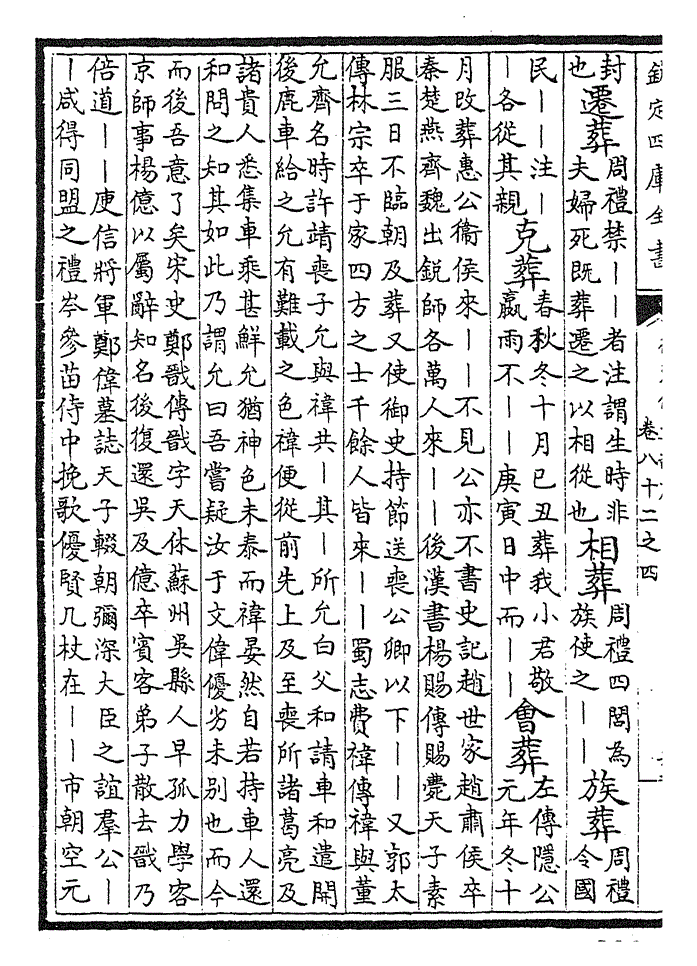 欽定四庫全書
卷八十二之四
封
也
遷葬
周禮禁——者注謂生時非
夫婦死既葬遷之以相從也
相葬
周禮四閭為
族使之——
族葬
周禮
令國
民——注—
—各從其親
克葬
春秋冬十月己丑葬我小君敬
嬴雨不——庚寅日中而——
會葬
左傳隱公
元年冬十
月改葬惠公衞侯來——不見公亦不書史記趙世家趙肅侯卒
秦楚燕齊魏出銳師各萬人來——後漢書楊賜傳賜薨天子素
服三日不臨朝及葬又使御史持節送喪公卿以下——又郭太
傳林宗卒于家四方之士千餘人皆來——蜀志費禕傳禕與董
允齊名時許靖喪子允與禕共—其—所允白父和請車和遣開
後鹿車給之允有難載之色禕便從前先上及至喪所諸葛亮及
諸貴人悉集車乘甚鮮允猶神色未泰而禕晏然自若持車人還
和問之知其如此乃謂允曰吾嘗疑汝于文偉優劣未別也而今
而後吾意了矣宋史鄭戩傳戩字天休蘇州吳縣人早孤力學客
京師事楊億以屬辭知名後復還吳及億卒賓客弟子散去戩乃
倍道——庾信將軍鄭偉墓誌天子輟朝彌深大臣之誼羣公—
—咸得同盟之禮岑參苗侍中挽歌優賢几杖在——市朝空元